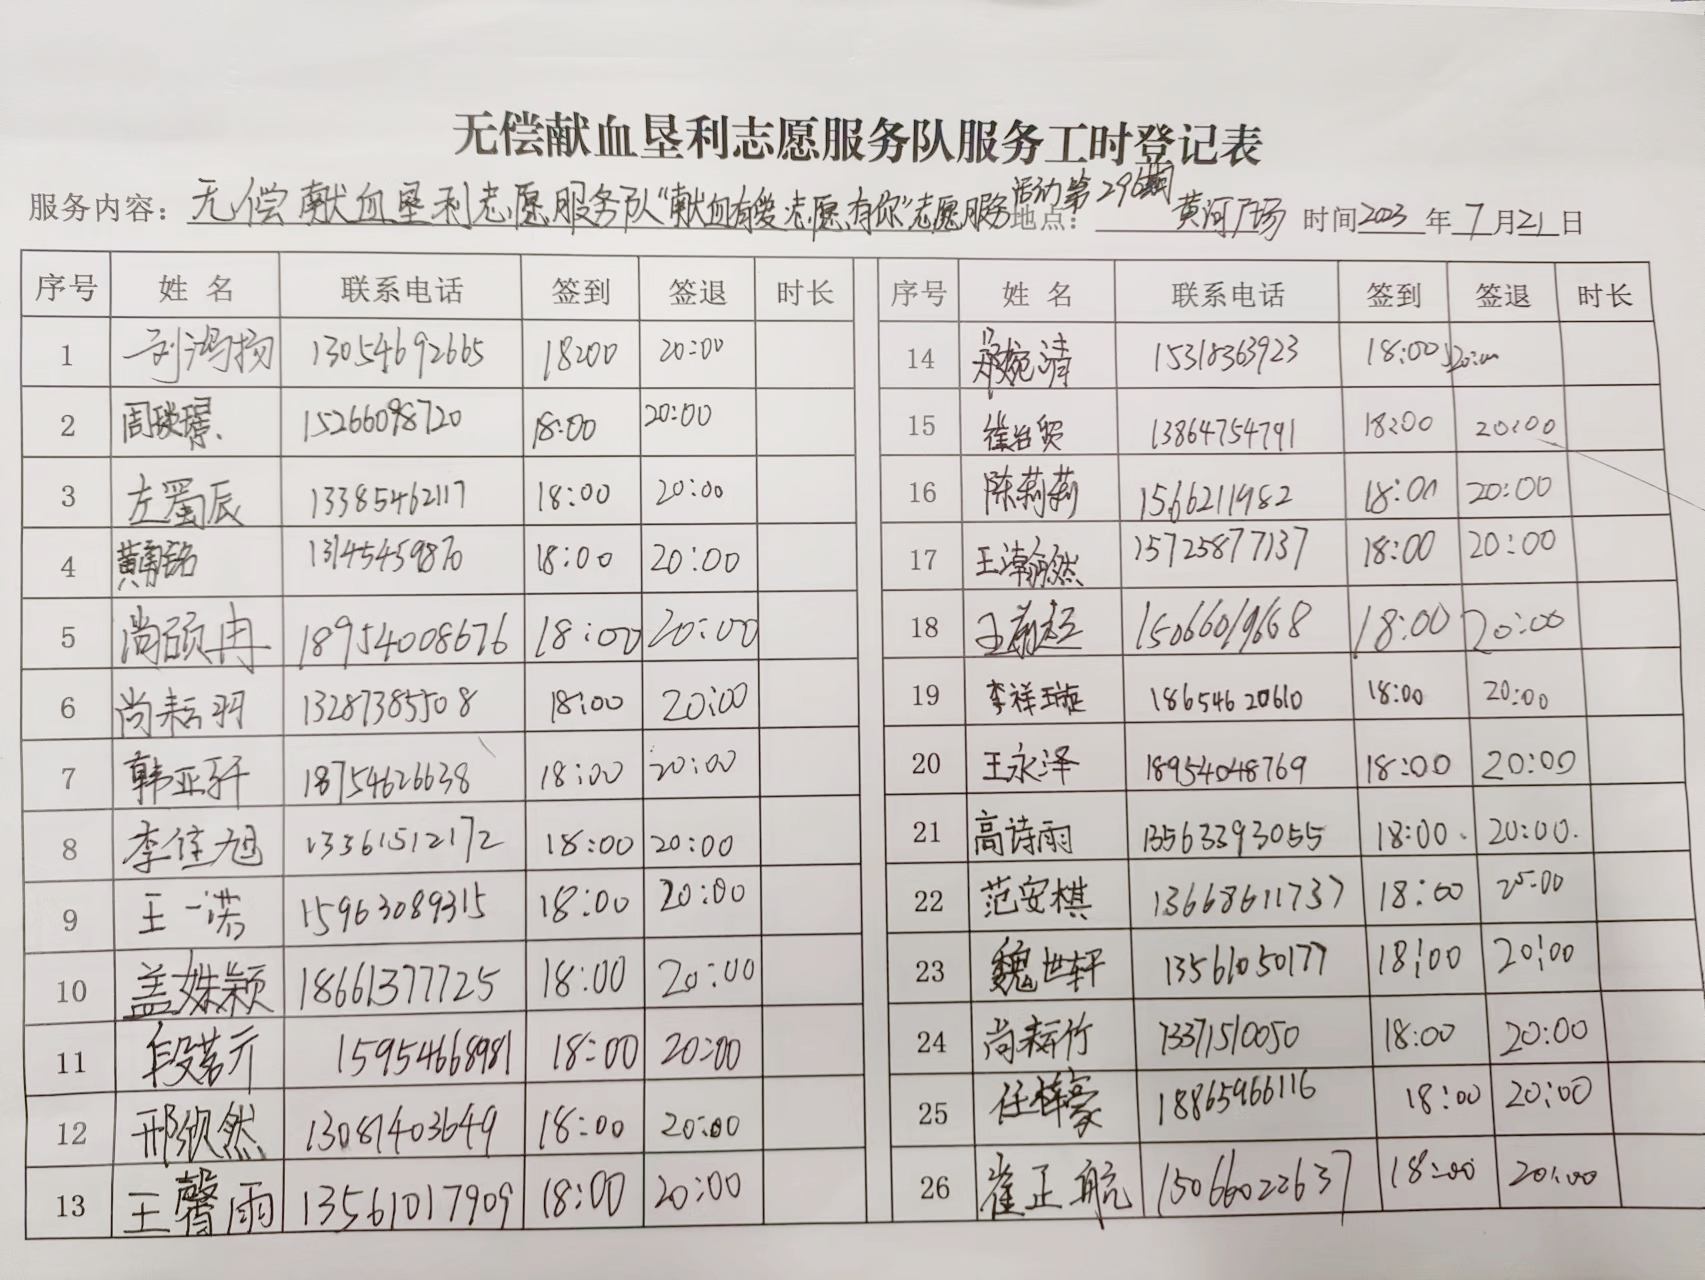 无偿献血垦利志愿服务队服务工时登记表
服务内容：无偿献血垦利志愿服务队“献血有爱 志愿有你”志愿服务活动第296期 地点：黄河广场 时间2023年7月21日
序号 姓名 联系电话 签到 签退 时长 序号 姓名 联系电话 签到 签退 时长
1 刘鸿扬 13054692665 18:00 20:00 14 郑婉清 15318363923 18:00 20:00
2 周琰璟 15266098720 18:00 20:00 15 崔治贸 13864754791 18:00 20:00
3 左蜀辰 13385462117 18:00 20:00 16 陈莉莉 1566211982 18:00 20:00
4 黄勇铭 13145459870 18:00 20:00 17 王瀚然 15725877137 18:00 20:00
5 尚硕冉 18954008676 18:00 20:00 18 王蔚超 15066019668 18:00 20:00
6 尚耘羽 13287385508 18:00 20:00 19 李祥璇 18654620610 18:00 20:00
7 韩亚轩 18754626638 18:00 20:00 20 王永泽 18954048769 18:00 20:00
8 李佳旭 13361512172 18:00 20:00 21 高诗雨 13563393055 18:00 20:00
9 王一诺 15963089315 18:00 20:00 22 范安棋 13668611737 18:00 20:00
10 盖姝颖 18661377725 18:00 20:00 23 魏世轩 13561050177 18:00 20:00
11 段若亓 15954668981 18:00 20:00 24 尚耘竹 13371510050 18:00 20:00
12 邢欣然 13081403649 18:00 20:00 25 任梓豪 18865966116 18:00 20:00
13 王馨雨 13561017909 18:00 20:00 26 崔正航 15066022637 18:00 20:00